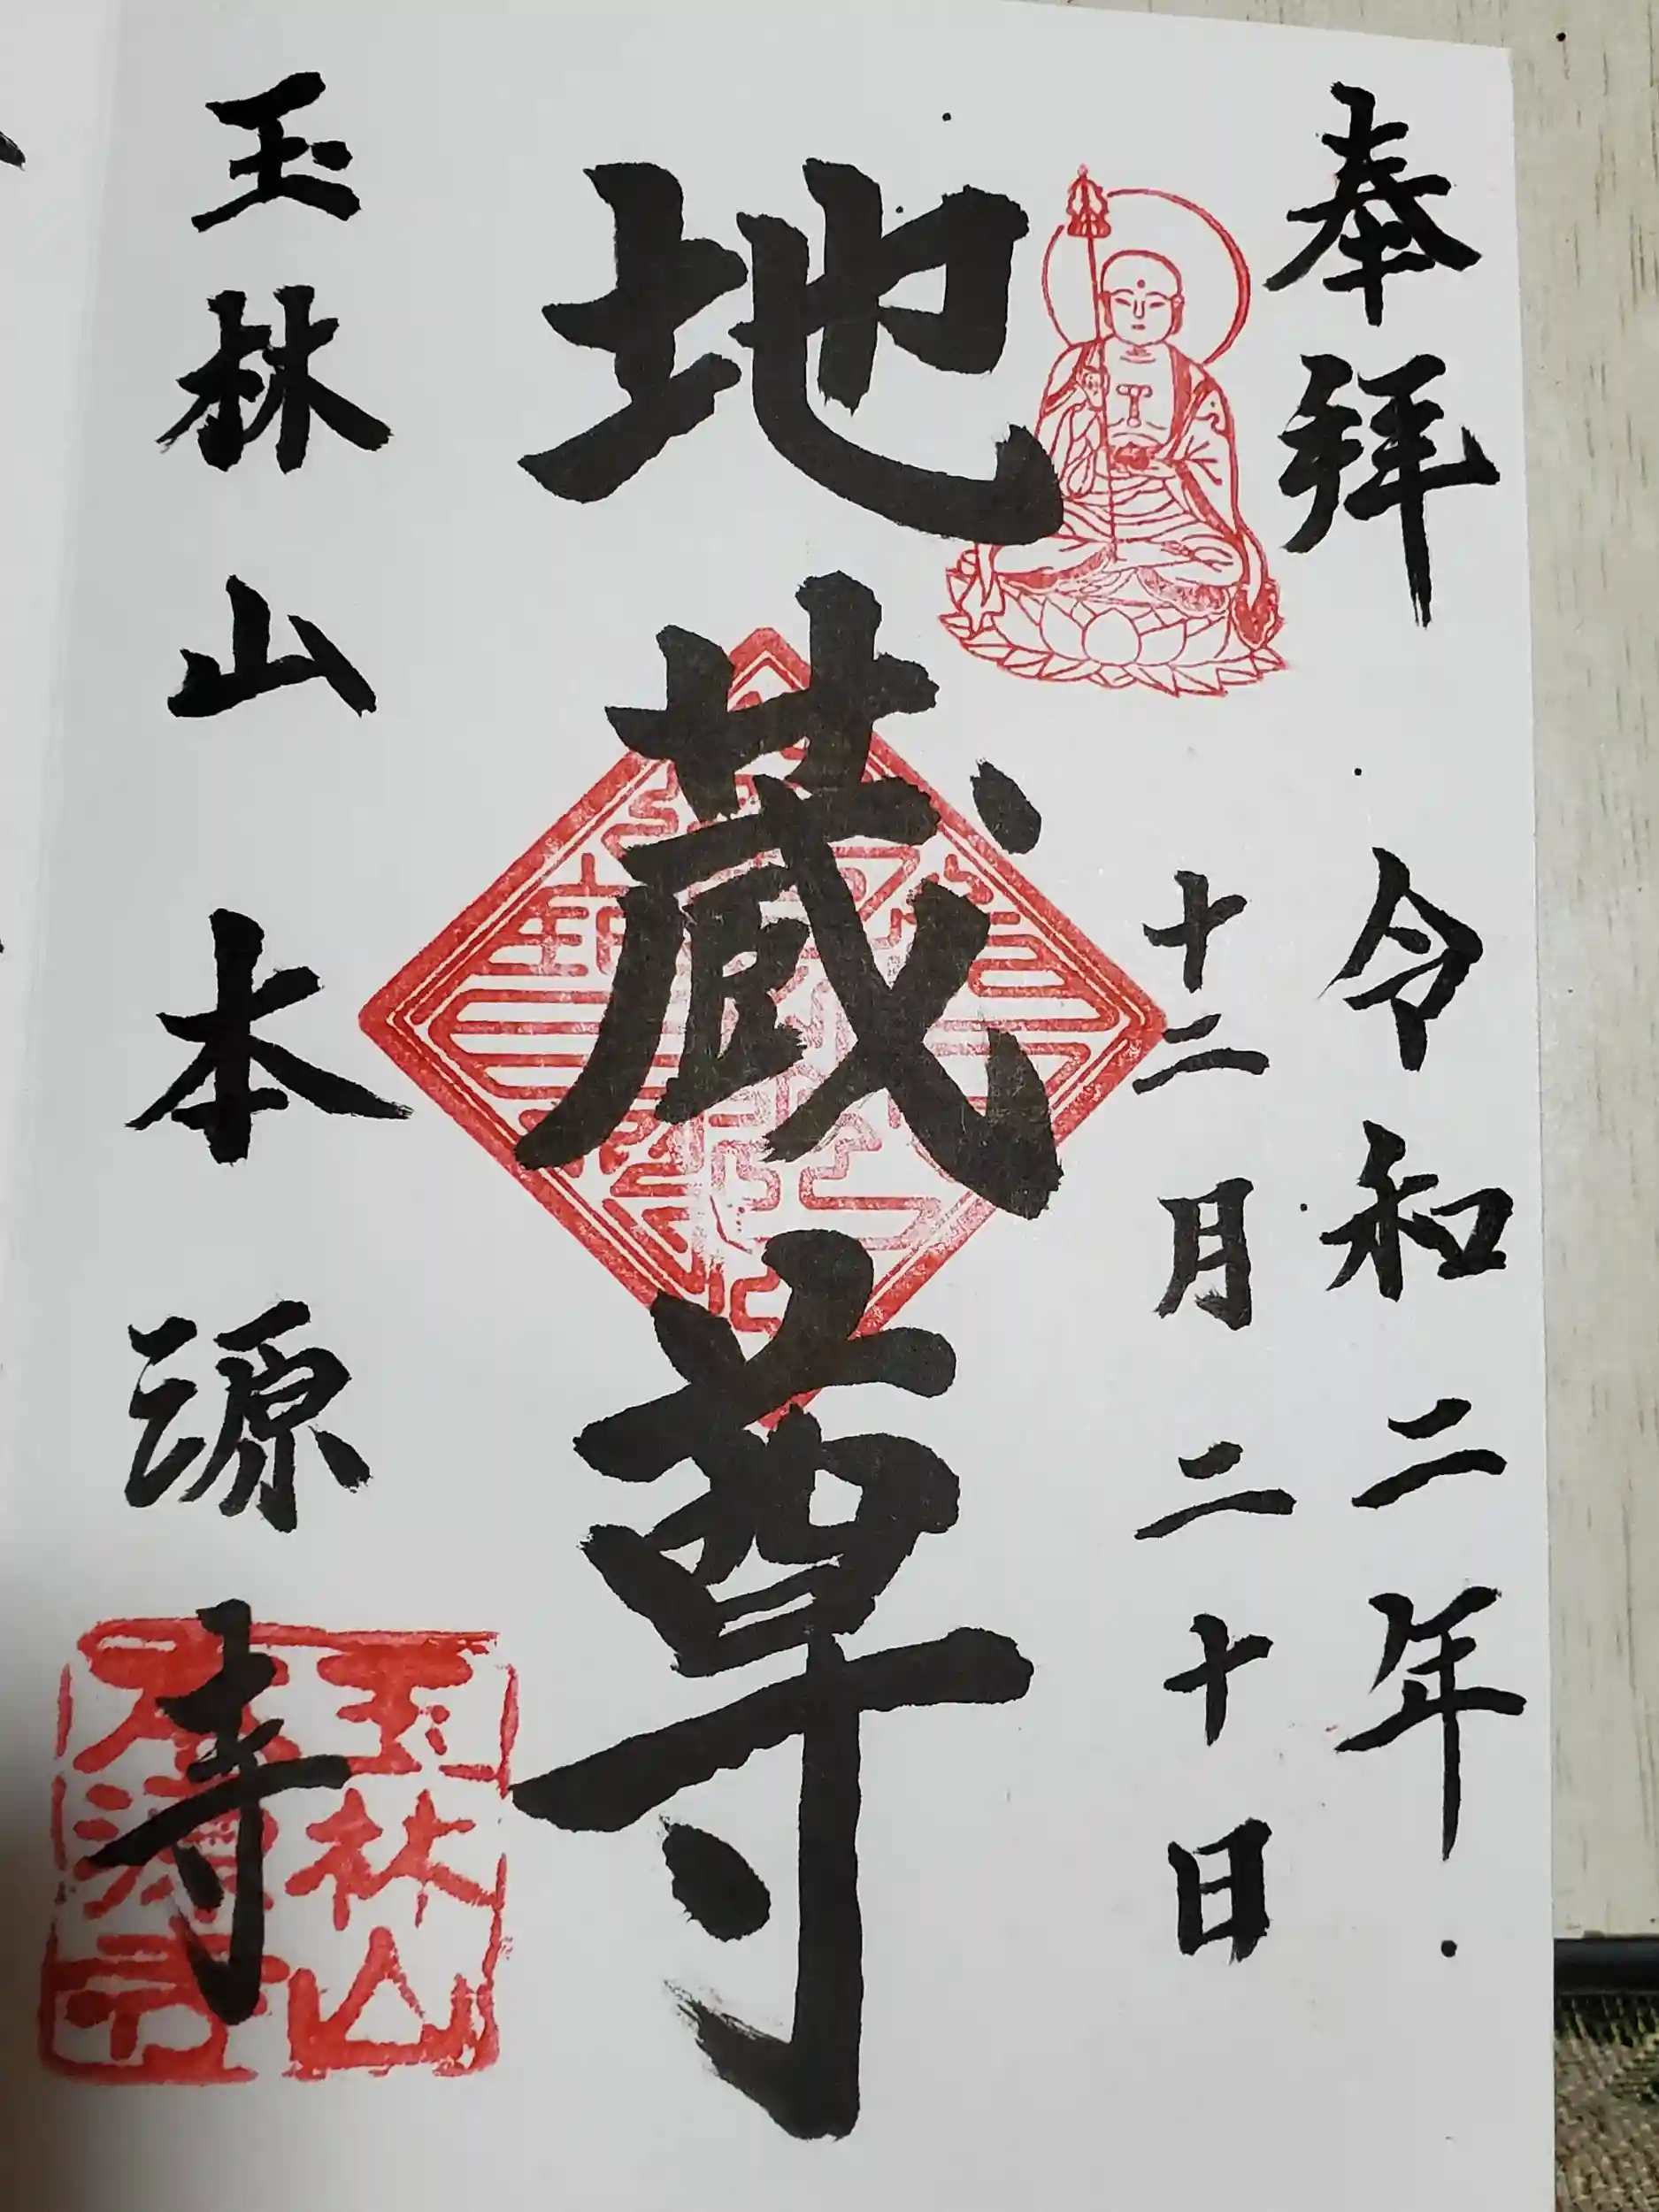 奉拜
令和二年
十二月二十日
地蔵尊
玉林山本源寺
玉林山
本源寺